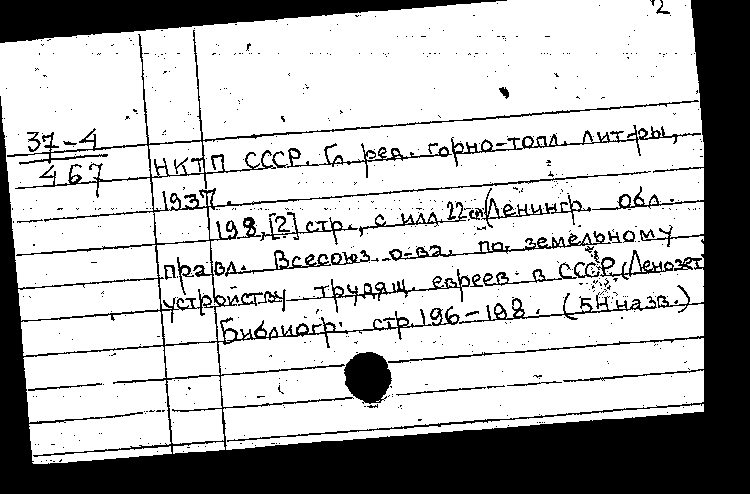 2
37-4
467
НКТП СССР. Гл. ред. горно-топл. лит-ры,
1937.
198, [2] стр., с илл. 22 см (Ленингр. обл.
правл. Всесоюз. о-ва. по земельному
устройству трудящ. евреев в СССР (Ленозет)
Библиогр. стр. 196-198. (назв.)